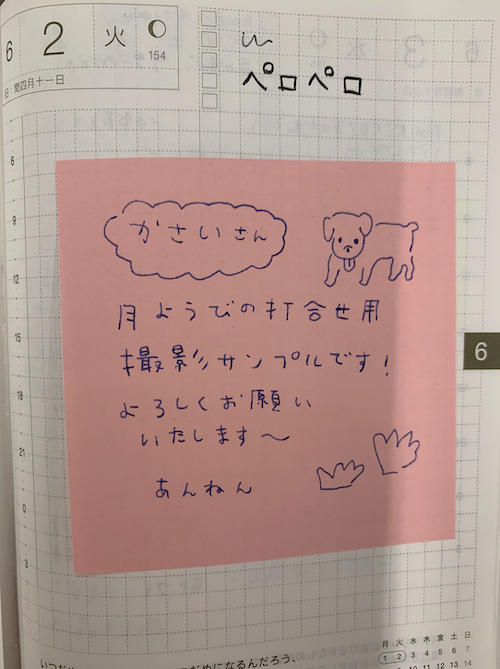 6 2 火
154
旦:閏四月十一日
ペロペロ
かさいさん
月ようびの打合せ用
撮影サンプルです!
よろしくお願い
いたします〜
あんねん
6
9
12
15
18
21
0
3
6
月 火 水 木 金 土 日
1 2 3 4 5 6 7
8 9 10 11 12 13 14